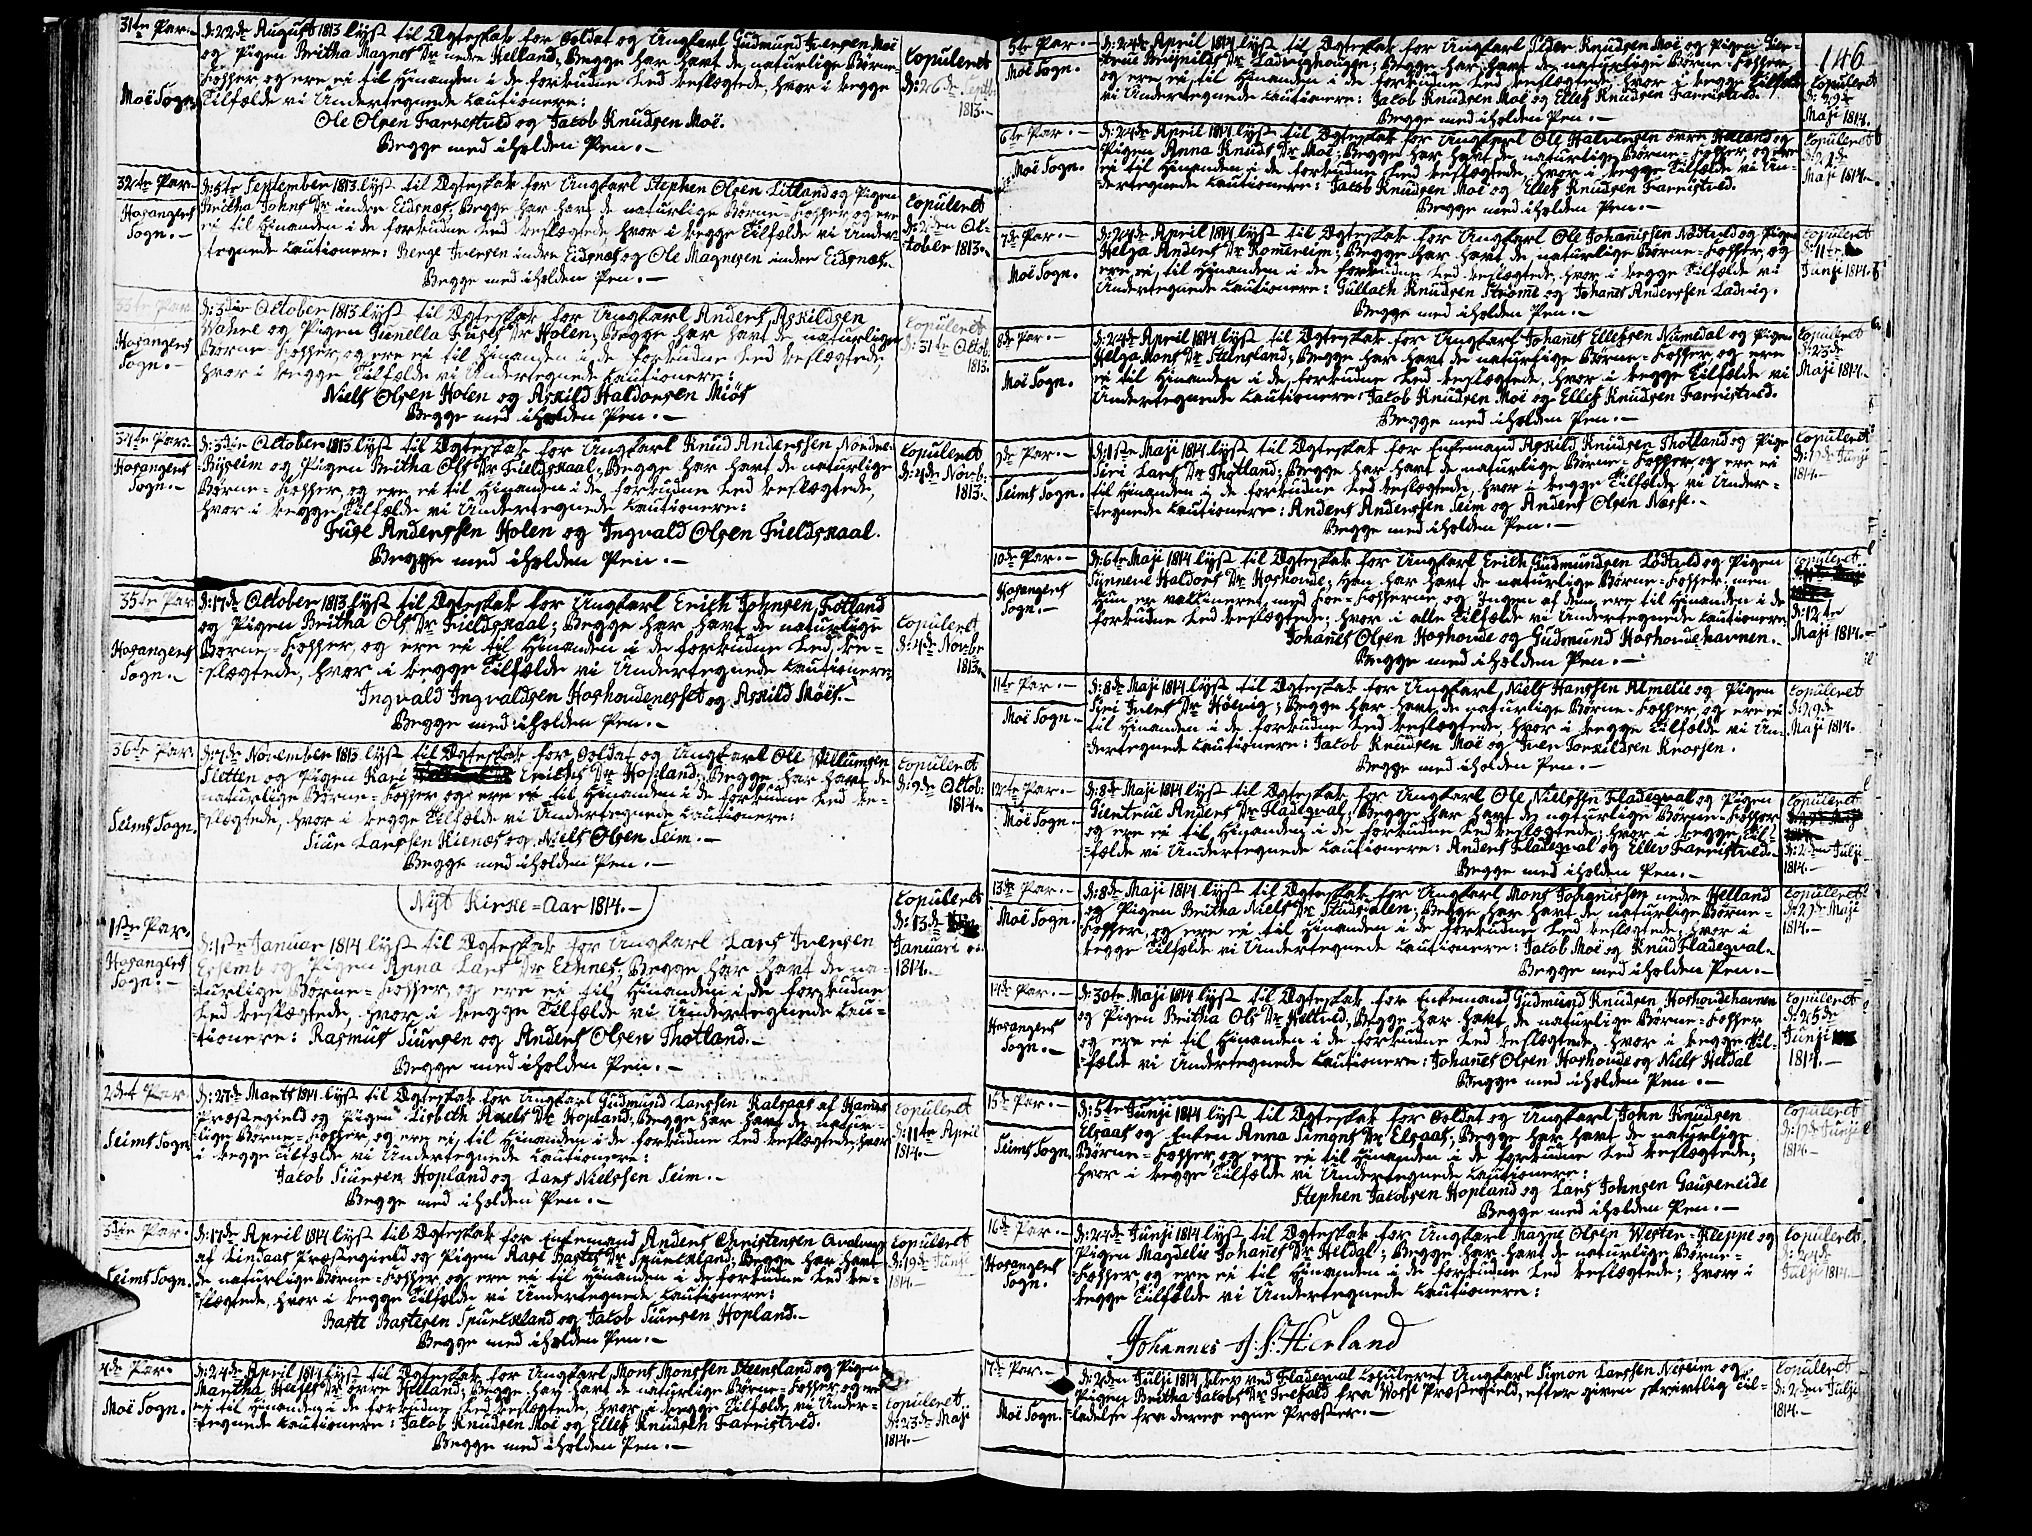 31te Par.
Moë Sogn.
d: 22de August 1813 lyst til Ægteskab for Soldat og Ungkarl Gudmund Iversen Moë
og Pigen Britha Magnes Dr nedre Helland; Begge har havt de naturlige Børne-
Kopper og ere ei til Hinanden i de forbudne Led beslægtede, hvor i begge
Tilfælde vi Undertegnede Cautionere:
Ole Olsen Farrestved og Jacob Knudsen Moë.
Begge med iholden Pen.
Copuleret
d: 26de Septb.
1813.
32te Par
Hosangers
Sogn.
d: 5te September 1813 lyst til Ægteskab for Ungkarl Stephen Olsen Litland og Pigen
Britha Johns Dr indre Eidsnæs; Begge har havt de naturlige Børne-Kopper, og ere
ei til Hinanden i de forbudne Led beslægtede, hvor i begge Tilfælde vi Under-
tegnede Cautionere: Berge Iversen indre Eidsnæs og Ole Magnesen indre Eidsnæs.
Begge med iholden Pen.
Copuleret
d: 2den Oc-
tober 1813.
33te Par
Hosangers
Sogn.
d: 3die October 1813 lyst til Ægteskab for Ungkarl Anders Askildsen
og Pigen Gunella Fuses Dr Holen; Begge har havt de naturlige
Børne-Kopper, og ere ei til Hinanden i de forbudne Led beslægtede,
hvor i begge Tilfælde vi Undertegnede Cautionere:
Niels Olsen Holen og Askild Haldorsen Miøs
Begge med iholden Pen.
Copuleret
d: 31te Octob.
1813.
34te Par.
Hosangers
Sogn.
d: 3die October 1813 lyst til Ægteskab for Ungkarl Knud Anderssen Nordre
Byseim og Pigen Britha Ols Dr Fieldskaal; Begge har havt de naturlige
Børne-Kopper, og ere ei til Hinanden i de forbudne Led beslægtede,
hvor i begge Tilfælde vi Undertegnede Cautionere:
Fuse Anderssen Holen og Ingvald Olsen Fieldskaal.
Begge med iholden Pen.
Copuleret
d: 4de Novb.
1813.
35te Par
Hosangers
Sogn.
d: 17de October 1813 lyst til Ægteskab for Ungkarl Erich Johnsen Fotland
og Pigen Britha Ols Dr Fieldskaal; Begge har havt de naturlige
Børne-Kopper, og ere ei til Hinanden i de forbudne Led be-
slægtede, hvor i begge Tilfælde vi Undertegnede Cautionere:
Ingvald Ingvaldsen Hoshovdenesset og Askild Möes.
Begge med iholden Pen.
Copuleret
d: 4de Novbr
1813.
36te Par
Seims Sogn.
d: 4de November 1813 lyst til Ægteskab for Soldat og Ungkarl Ole Villumsen
Sletten og Pigen Kari Erichs Dr Hopland; Begge har havt de
naturlige Børne-Kopper og ere ei til Hinanden i de forbudne Led be-
slægtede, hvor i begge Tilfælde vi Undertegnede Cautionere:
Siur Larssen Hienæs og Niels Olsen Seim.
Begge med iholden Pen.
Copuleret
d: 9de Octob.
1814.
Nyt Kirke-Aar 1814.
1ste Par.
Hosangers
Sogn.
d: 1ste Januar 1814 lyst til Ægteskab for Ungkarl Lars Iversen
og Pigen Anna Lars Dr Echnes; Begge har havt de na-
turlige Børne-Kopper, og ere ei til Hinanden i de forbudne
Led beslægtede, hvor i begge Tilfælde vi Undertegnede Cau-
tionere: Rasmus Siursen og Anders Olsen Thotland.
Begge med iholden Pen.
Copuleret
d: 13de
Januari
1814.
2det Par
Seims Sogn
d: 27de Marts 1814 lyst til Ægteskab for Ungkarl Gudmund Larssen Kalsaas af Hammers
Præstegield og Pigen Lisbeth Axels Dr Hopland; Begge har havt de natur-
lige Børne-Kopper, og ere ei til Hinanden i de forbudne Led beslægtede, hvor
i begge Tilfælde vi Undertegnede Cautionere:
Jacob Siursen Hopland og Lars Nielssen Seim.
Begge med iholden Pen.
Copuleret
d: 11te April
1814.
3die Par.
Seims Sogn.
d: 17de April 1814 lyst til Ægteskab for Enkemand Anders Christensen
af Lindaas Præstegield og Pigen Aase Bastes Dr Spurkeland; Begge har havt
de naturlige Børne-Kopper, og ere ei til Hinanden i de forbudne Led be-
slægtede, hvor i begge Tilfælde vi Undertegnede Cautionere:
Baste Bastesen Spurkeland og Jacob Siursen Hopland.
Begge med iholden Pen.
Copuleret
d: 19de Junii
1814.
4de Par.
Moë Sogn.
d: 24de April 1814 lyst til Ægteskab for Ungkarl Mons Monssen Steensland og Pigen
Martha Dr øvre Helland; Begge har havt de naturlige Børne-Kopper og ere
ei til Hinanden i de forbudne Led beslægtede, hvor i begge Tilfælde vi Under-
tegnede Cautionere: Jacob Knudsen Moë og Ellef Knudsen Farrestved.
Begge med iholden Pen.
Copuleret
d: 23de Maji
1814.
146
5te Par.
Moë Sogn.
d: 24de April 1814 lyst til Ægteskab for Ungkarl Peder Knudsen Moë og Pigen
Brynilds Dr Ladvighougen; Begge har havt de naturlige Børne-Kopper
og ere ei til Hinanden i de forbudne Led beslægtede, hvor i begge Tilfælde
vi Undertegnede Cautionere: Jacob Knudsen Moë og Ellef Knudsen Farrestved.
Begge med iholden Pen.
Copuleret
d: 29de
Maji 1814.
6te Par.
Moë Sogn.
d: 24de April 1814 lyst til Ægteskab for Ungkarl Ole Halvorsen øvre Helland og
Pigen Anna Knuds Dr Moë; Begge har havt de naturlige Børne-Kopper, og ere
ei til Hinanden i de forbudne Led beslægtede, hvor i begge Tilfælde vi Un-
dertegnede Cautionere: Jacob Knudsen Moë og Ellef Knudsen Farrestved.
Begge med iholden Pen.
Copuleret
Maji 1814.
7de Par.
Moë Sogn.
d: 24de April 1814 lyst til Ægteskab for Ungkarl Ole Johannssen Nødtved og Pigen
Helga Anders Dr Romereim; Begge har havt de naturlige Børne-Kopper, og
ere ei til Hinanden i de forbudne Led beslægtede, hvor i begge Tilfælde vi
Undertegnede Cautionere: Gullach Knudsen Strømme og Johanes Anderssen Ladvig.
Begge med iholden Pen.
Copuleret
d: 11te
Junji 1814.
8de Par.
Moë Sogn.
d: 24de April 1814 lyst til Ægteskab for Ungkarl Johanes Ellefsen Numedal og Pigen
Helga Mons Dr Steensland; Begge har havt de naturlige Børne-Kopper, og ere
ei til Hinanden i de forbudne Led beslægtede, hvor i begge Tilfælde vi
Undertegnede Cautionere: Jacob Knudsen Moë og Ellef Knudsen Farrestved.
Begge med iholden Pen.
Copuleret
d: 23de
Maji 1814.
9de Par.
Seims Sogn.
d: 1ste Maji 1814 lyst til Ægteskab for Enkemand Askild Knudsen Thotland og Pige
Siri Lars Dr Thotland; Begge har havt de naturlige Børne-Kopper, og ere ei
til Hinanden i de forbudne Led beslægtede, hvor i begge Tilfælde vi Under-
tegnede Cautionere: Anders Anderssen Seim og Anders Olsen Næsse.
Begge med iholden Pen.
Copuleret
d: 19de Junji
1814.
10de Par.
Hosangers
Sogn.
d: 6te Maji 1814 lyst til Ægteskab for Ungkarl Erich Gudmundsen Lødtved og Pigen
Synneve Haldors Dr Hoshovde; Han har havt de naturlige Børne-Kopper, men
Hun er vaccineret med Koe-Kopperne, og Ingen af dem ere til Hinanden i de
forbudne Led beslægtede; hvor i alle Tilfælde vi Undertegnede Cautionere
Johanes Olsen Hoshovde og Gudmund Hoshovdehavnen.
Begge med iholden Pen.
Copuleret
d: 12te
Maji 1814.
11te Par.
Moë Sogn.
d: 8de Maji 1814 lyst til Ægteskab for Ungkarl Niels Hanssen Almelie og Pigen
Siri Ivers Dr Hölvig; Begge har havt de naturlige Børne-Kopper, og ere ei
til Hinanden i de forbudne Led beslægtede, hvor i begge Tilfælde vi Un-
dertegnede Cautionere: Jacob Knudsen Moë og Iver Torkildsen Knossen.
Begge med iholden Pen.
Copuleret
d: 29de
Maji 1814.
12te Par.
Moë Sogn.
d: 8de Maji 1814 lyst til Ægteskab for Ungkarl Ole Nielssen Fladeqval og Pigen
Giertrue Anders Dr Fladeqval; Begge har havt de naturlige Børne-Kopper
og ere ei til Hinanden i de forbudne Led beslægtede; hvor i begge Til-
fælde vi Undertegnede Cautionere: Anders Fladeqval og Ellev Farrestved.
Begge med iholden Pen.
Copuleret
d: 2den Julji
1814.
13de Par.
Moë Sogn.
d: 8de Maji 1814 lyst til Ægteskab for Ungkarl Mons Johannssen nedre Helland
og Pigen Britha Niels Dr Studsdalen; Begge har havt de naturlige Børne-
Kopper, og ere ei til Hinanden i de forbudne Led beslægtede, hvor i
begge Tilfælde vi Undertegnede Cautionere: Jacob Moë og Knud Fladeqval.
Begge med iholden Pen.
Copuleret
d: 29de Maji
1814.
14de Par.
Hosangers
Sogn.
d: 30te Maji 1814 lyst til Ægteskab for Enkemand Gudmund Knudsen Hoshovdehavnen
og Pigen Britha Ols Dr Heltved; Begge har havt de naturlige Børne-Kopper
og ere ei til Hinanden i de forbudne Led beslægtede, hvor i begge Til-
fælde vi Undertegnede Cautionere: Johanes Olsen Hoshovde og Niels Heldal
Begge med iholden Pen.
Copuleret
d: 25de
Junji
1814.
15de Par.
Seims Sogn.
d: 5te Junji 1814 lyst til Ægteskab for Soldat og Ungkarl John Knudsen
Elsaas og Enken Anna Simons Dr Elsaas; Begge har havt de naturlige
Børne-Kopper, og ere ei til Hinanden i de forbudne Led beslægtede;
hvor i begge Tilfælde vi Undertegnede Cautionere:
Stephen Jacobsen Hopland og Lars Johnsen Gausereide
Begge med iholden Pen.
Copuleret
d: 19de Junji
1814.
16de Par.
Hosangers
Sogn.
d: 24de Junji 1814 lyst til Ægteskab for Ungkarl Magne Olsen Wester-Kleppe og
Pigen Magdelie Johanes Dr Heldal; Begge har havt de naturlige Børne-
Kopper, og ere ei til Hinanden i de forbudne Led beslægtede; hvor i
begge Tilfælde vi Undertegnede Cautionere:
Johannes J. S. Herland
Copuleret
d: 24de
Julji 1814.
17de Par.
Moë Sogn.
d: 2den Julji 1814 blev ved Fladeqval Copuleret Ungkarl Simon Larssen Neseim og
Pigen Britha Jacobs Dr fra Woss Præstegield, efter given skrivtlig Til-
ladelse fra deres egne Præster.
Copuleret
d: 2den Julji
1814.